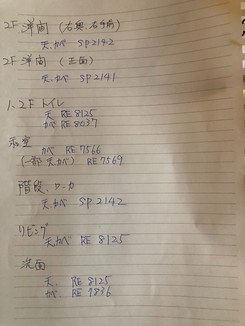 2F 洋間 (右奥、右手前)
天、カベ SP2142
2F 洋間 (正面)
天、カベ SP2141
1、2F トイレ
天 RE8125
カベ RE8037
和室
カベ RE7566
(一部 天カベ) RE7569
階段、ローカ
天カベ SP2142
リビング
天カベ RE8125
洗面
天、RE8125
カベ、RE7836